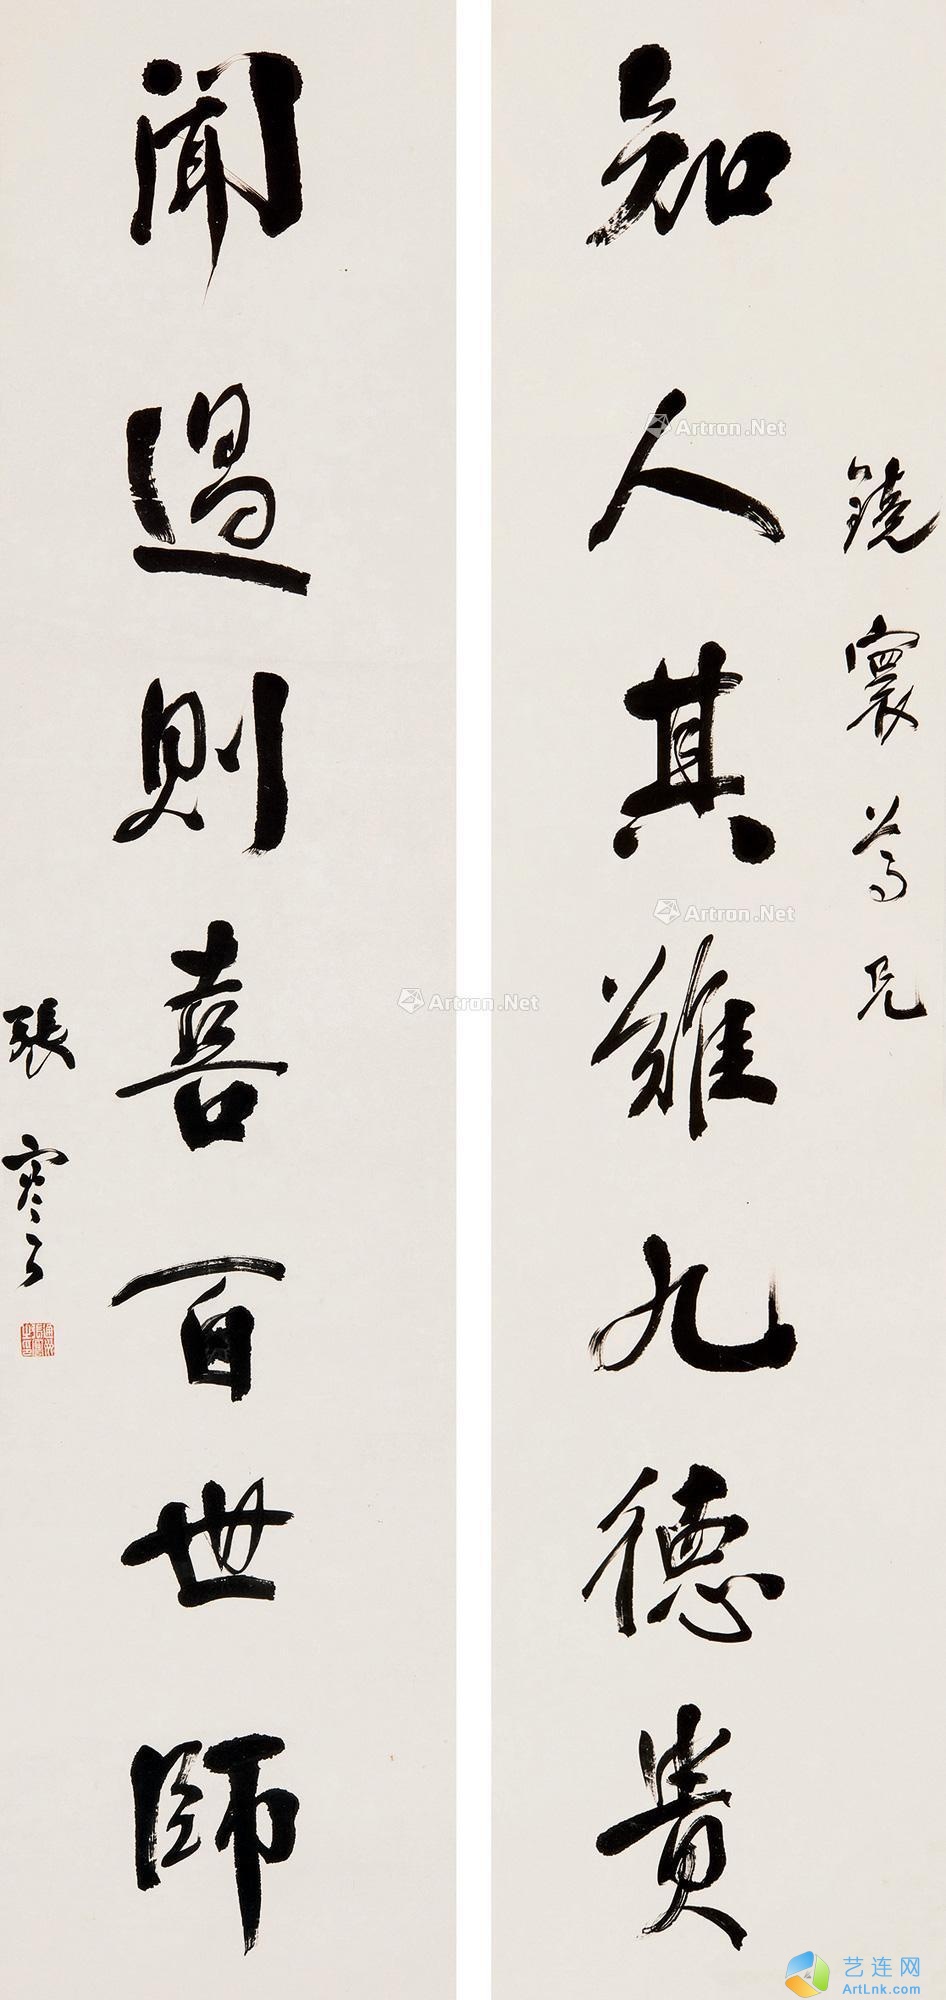 鐃寰尊兄
知人其難九德貴
聞過則喜百世師
張謇
Artron.Net
Artron.Net
Artron.Net
艺连网
ArtLnk.com